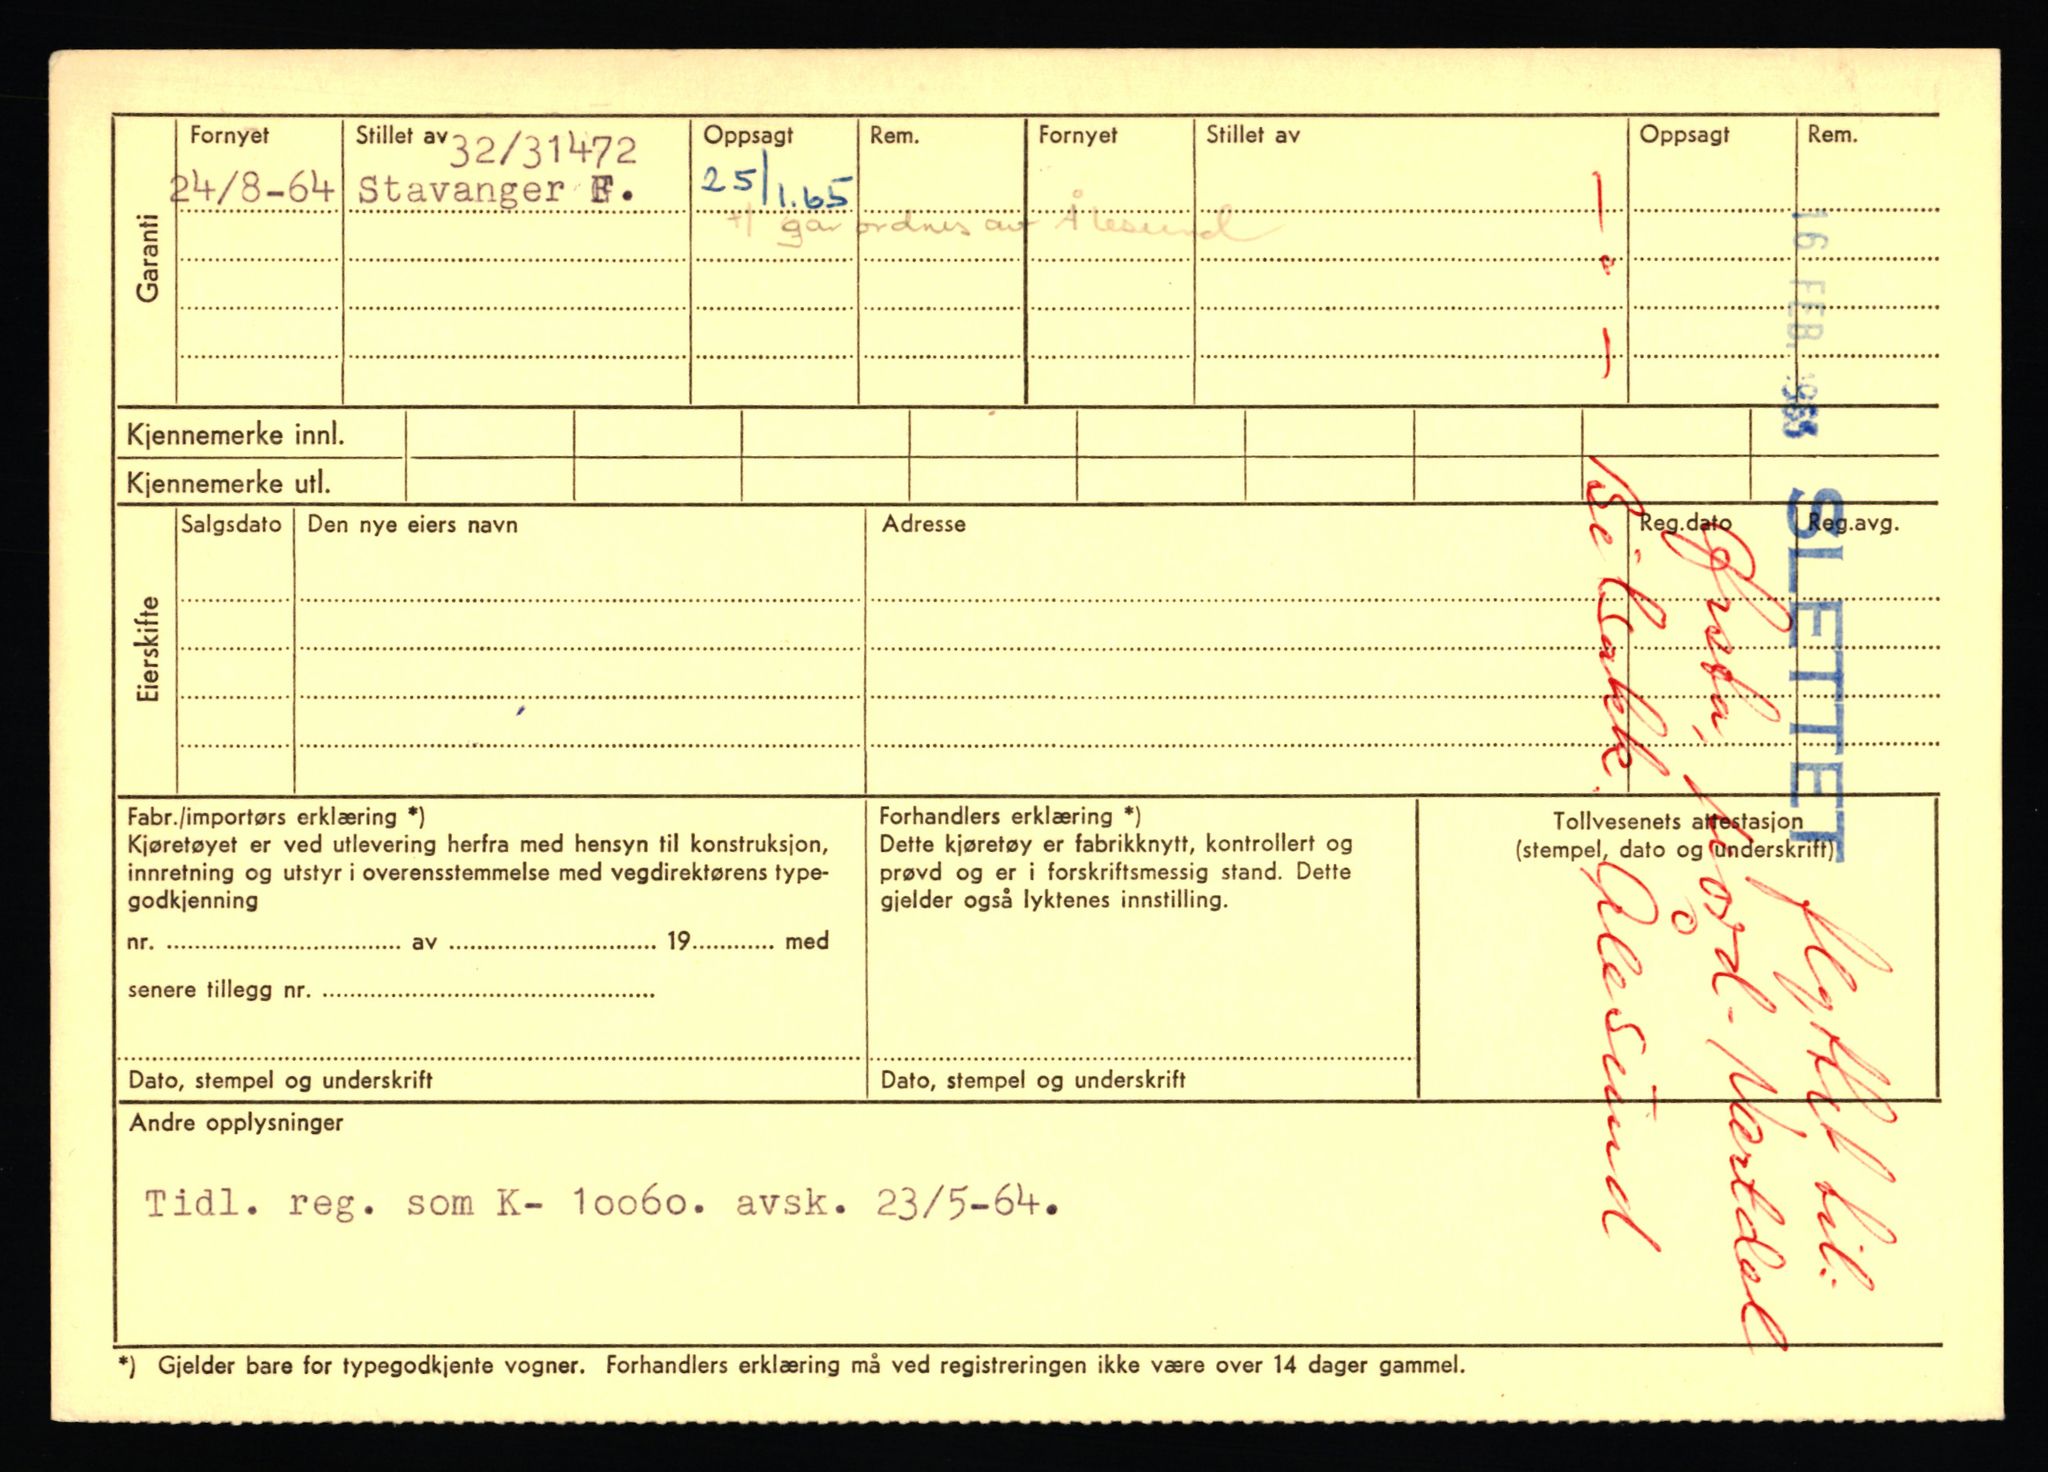 Garanti
Fornyet Stillet av Oppsagt Rem. Fornyet Stillet av Oppsagt Rem.
32/31472
24/8-64 Stavanger F. 25/1.65
ordnes av Ålesund
16 FEB.
SLETTET
Kjennemerke innl.
Kjennemerke utl.
Eierskifte
Salgsdato Den nye eiers navn Adresse Reg.dato Reg.avg.
flyttet til:
Vartdal
Bilsakk. Ålesund
Fabr./importørs erklæring *)
Kjøretøyet er ved utlevering herfra med hensyn til konstruksjon,
innretning og utstyr i overensstemmelse med vegdirektørens type-
godkjenning
nr. av 19 med
senere tillegg nr.
Dato, stempel og underskrift
Forhandlers erklæring *)
Dette kjøretøy er fabrikknytt, kontrollert og
prøvd og er i forskriftsmessig stand. Dette
gjelder også lyktenes innstilling.
Dato, stempel og underskrift
Tollvesenets attestasjon
(stempel, dato og underskrift)
Andre opplysninger
Tidl. reg. som K- 10060. avsk. 23/5-64.
*) Gjelder bare for typegodkjente vogner. Forhandlers erklæring må ved registreringen ikke være over 14 dager gammel.